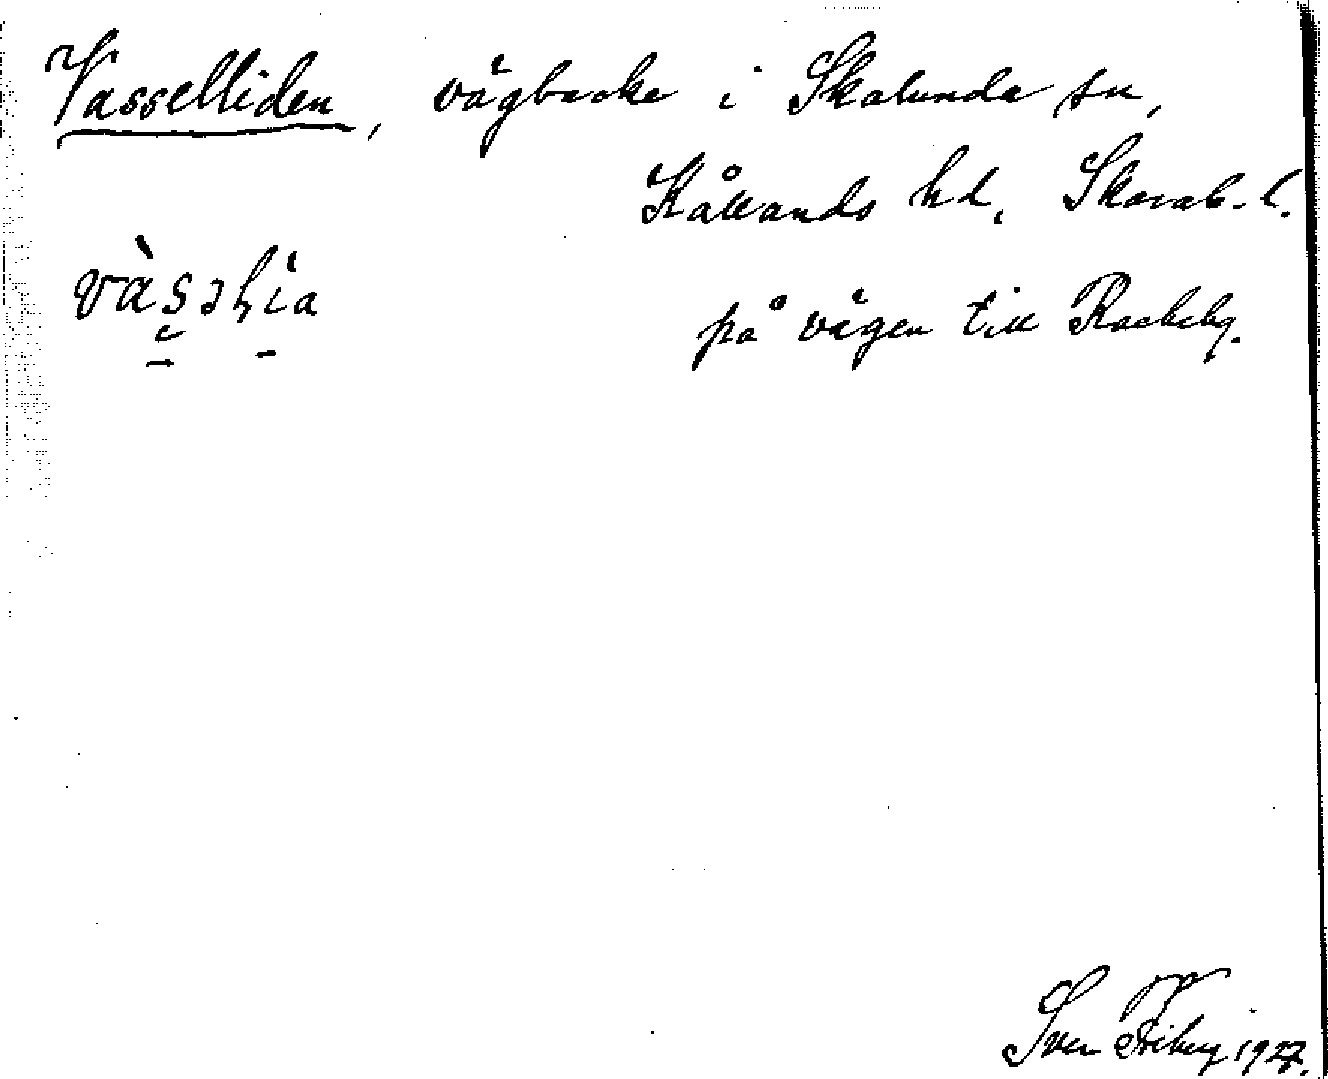 Vasselliden, vägbacke i Skalunda sn,
Kållands hd. Skarab. l.
vàsəlia
på vägen till Rackeby.
Sven Friberg 1927.